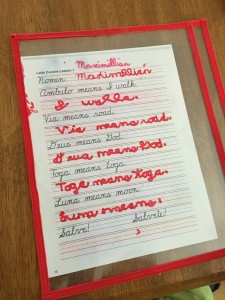 Maximillian
Latin Cursive Lesson 1
Nomen: Maximillian
Ambulo means I walk.
I walk.
Via means road.
Via means road.
Deus means God.
Deus means God.
Toga means toga.
Toga means toga.
Luna means moon.
Luna means
Salve! Salvete!